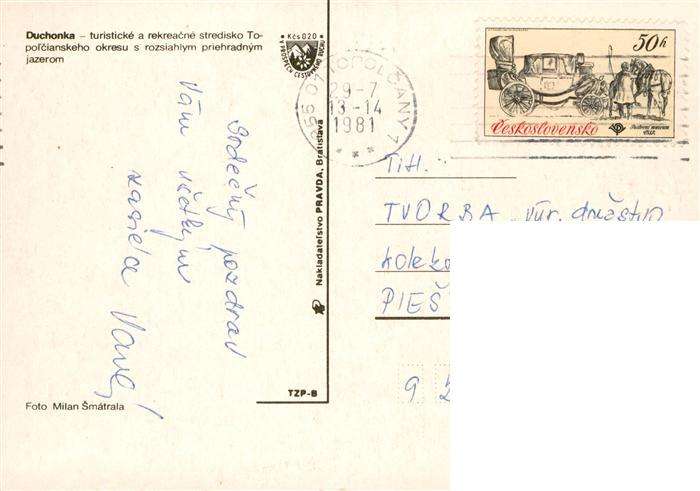 Duchonka – turistické a rekreačné stredisko To-
poľčianskeho okresu s rozsiahlym priehradným
jazerom
Kčs 0,20
V PROSPECH CESTOVNÉHO RUCHU
Srdečný pozdrav
Vám všetkým
zasiela
Nakladateľstvo PRAVDA, Bratislava
TZP-B
Foto Milan Šmátrala
TOPOĽČANY 1
29-7
13-14
1981
50h
Československo
Poštovní muzeum
Titl.
TVORBA výr. družstvo
PIEŠ
9